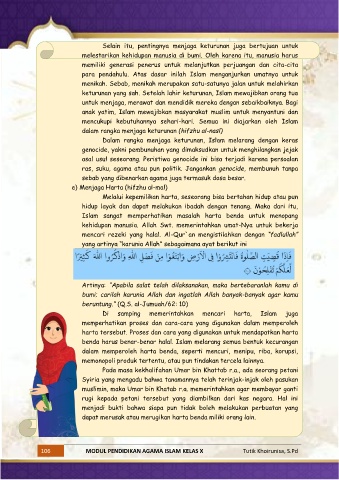 Selain itu, pentingnya menjaga keturunan juga bertujuan untuk
melestarikan kehidupan manusia di bumi. Oleh karena itu, manusia harus
memiliki generasi penerus untuk melanjutkan perjuangan dan cita-cita
para pendahulu. Atas dasar inilah Islam menganjurkan umatnya untuk
menikah. Sebab, menikah merupakan satu-satunya jalan untuk melahirkan
keturunan yang sah. Setelah lahir keturunan, Islam mewajibkan orang tua
untuk menjaga, merawat dan mendidik mereka dengan sebaikbaiknya. Bagi
anak yatim, Islam mewajibkan masyarakat muslim untuk menyantuni dan
mencukupi kebutuhannya sehari-hari. Semua ini diajarkan oleh Islam
dalam rangka menjaga keturunan (hifzhu al-nasl)
Dalam rangka menjaga keturunan, Islam melarang dengan keras
genocide, yakni pembunuhan yang dimaksudkan untuk menghilangkan jejak
asal usul seseorang. Peristiwa genocide ini bisa terjadi karena persoalan
ras, suku, agama atau pun politik. Jangankan genocide, membunuh tanpa
sebab yang dibenarkan agama juga termasuk dosa besar.
e) Menjaga Harta (hifzhu al-mal)
Melalui kepemilikan harta, seseorang bisa bertahan hidup atau pun
hidup layak dan dapat melakukan ibadah dengan tenang. Maka dari itu,
Islam sangat memperhatikan masalah harta benda untuk menopang
kehidupan manusia, Allah Swt. memerintahkan umat-Nya untuk bekerja
mencari rezeki yang halal. Al-Qur`an mengistilahkan dengan "fadlullah"
yang artinya "karunia Allah" sebagaimana ayat berikut ini
فَاِذَا قُضِيَتِ الصَّلٰوةُ فَانْتَشِرُوْا فِى الْاَرْضِ وَابْتَغُوْا مِنْ فَضْلِ اللّٰهِ وَاذْكُرُوا اللّٰهَ كَثِيْرًا
لَّعَلَّكُمْ تُفْلِحُوْنَ
Artinya: "Apabila salat telah dilaksanakan, maka bertebaranlah kamu di
bumi; carilah karunia Allah dan ingatlah Allah banyak-banyak agar kamu
beruntung." (Q.S. al-Jumuah/62: 10)
Di samping memerintahkan mencari harta, Islam juga
memperhatikan proses dan cara-cara yang digunakan dalam memperoleh
harta tersebut. Proses dan cara yang digunakan untuk mendapatkan harta
benda harus benar-benar halal. Islam melarang semua bentuk kecurangan
dalam memperoleh harta benda, seperti mencuri, menipu, riba, korupsi,
memonopoli produk tertentu, atau pun tindakan tercela lainnya.
Pada masa kekhalifahan Umar bin Khattab r.a., ada seorang petani
Syiria yang mengadu bahwa tanamannya telah terinjak-injak oleh pasukan
muslimin, maka Umar bin Khatab r.a. memerintahkan agar membayar ganti
rugi kepada petani tersebut yang diambilkan dari kas negara. Hal ini
menjadi bukti bahwa siapa pun tidak boleh melakukan perbuatan yang
dapat merusak atau merugikan harta benda miliki orang lain.
106 MODUL PENDIDIKAN AGAMA ISLAM KELAS X Tutik Khoirunisa, S.Pd